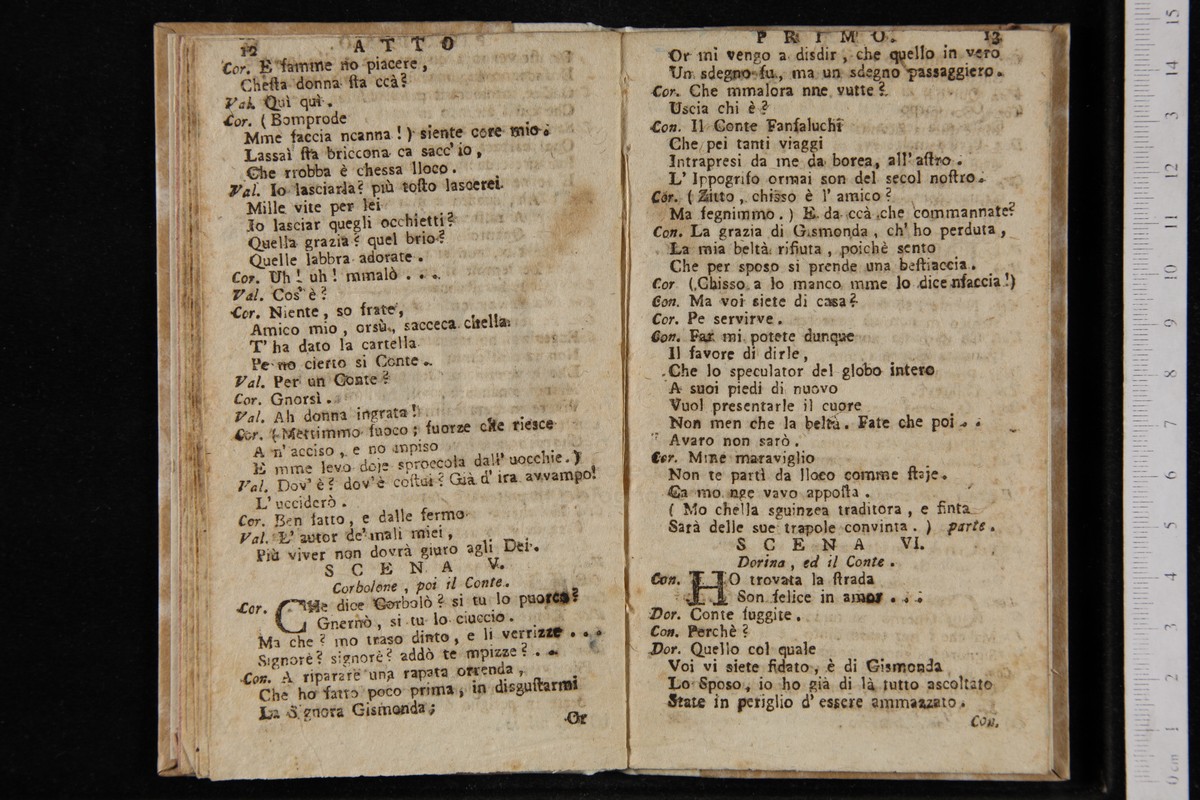 12 ATTO
Cor. E famme no piacere,
Chesta donna sta ccà?
Val. Quì quì.
Cor. (Bomprode
Mme faccia ncanna!) siente core mio:
Lassai sta briccona ca sacc' io,
Che rrobba è chessa lloco.
Val. Io lasciarla? più tosto lascerei
Mille vite per lei
Io lasciar quegli occhietti?
Quella grazia? quel brio?
Quelle labbra adorate.
Cor. Uh! uh! mmalò . . . .
Val. Cos' è?
Cor. Niente, so frate,
Amico mio, orsù, sacceca chella
T' ha dato la cartella
Pe no cierto si Conte.
Val. Per un Conte?
Cor. Gnorsì.
Val. Ah donna ingrata!
Cor. (Mettimmo fuoco; fuorze che riesce
A n' acciso, e no mpiso
E mme levo doje sproccola dall' uocchie.)
Val. Dov' è? dov' è costui? Già d' ira avvampo!
L' ucciderò.
Cor. Ben fatto, e dalle fermo
Val. L' autor de' mali miei,
Più viver non dovrà giuro agli Dei.
SCENA V.
Corbolone, poi il Conte.
Cor. CHe dice Corbolò? si tu lo puorco?
Gnernò, si tu lo ciuccio.
Ma che? mo traso dinto, e li verrizze . . .
Signorè? signorè? addò te mpizze? . .
Con. A riparare una rapata orrenda,
Che ho fatto poco prima, in disgustarmi
La Signora Gismonda;
Or
PRIMO. 13
Or mi vengo a disdir, che quello in vero
Un sdegno fu, ma un sdegno passaggiero.
Cor. Che mmalora nne vutte?
Uscia chi è?
Con. Il Conte Fanfaluchi
Che pei tanti viaggi
Intrapresi da me da borea, all' astro.
L' Ippogrifo ormai son del secol nostro.
Cor. (Zitto, chisso è l' amico?
Ma fegnimmo.) E da ccà che commannate?
Con. La grazia di Gismonda, ch' ho perduta,
La mia beltà rifiuta, poichè sento
Che per sposo si prende una bestiaccia.
Cor (Chisso a lo manco mme lo dice nfaccia!)
Con. Ma voi siete di casa?
Cor. Pe servirve.
Con. Far mi potete dunque
Il favore di dirle,
Che lo speculator del globo intero
A suoi piedi di nuovo
Vuol presentarle il cuore
Non men che la beltà. Fate che poi . .
Avaro non sarò.
Cor. Mme maraviglio
Non te partì da lloco comme staje.
Ca mo nge vavo apposta.
(Mo chella sguinzea traditora, e finta
Sarà delle sue trapole convinta.) parte.
SCENA VI.
Dorina, ed il Conte.
Con. HO trovata la strada
Son felice in amor . . .
Dor. Conte fuggite.
Con. Perchè?
Dor. Quello col quale
Voi vi siete fidato, è di Gismonda
Lo Sposo, io ho già di là tutto ascoltato
State in periglio d' essere ammazzato.
Con.
0 cm 1 2 3 4 5 6 7 8 9 10 11 12 13 14 15